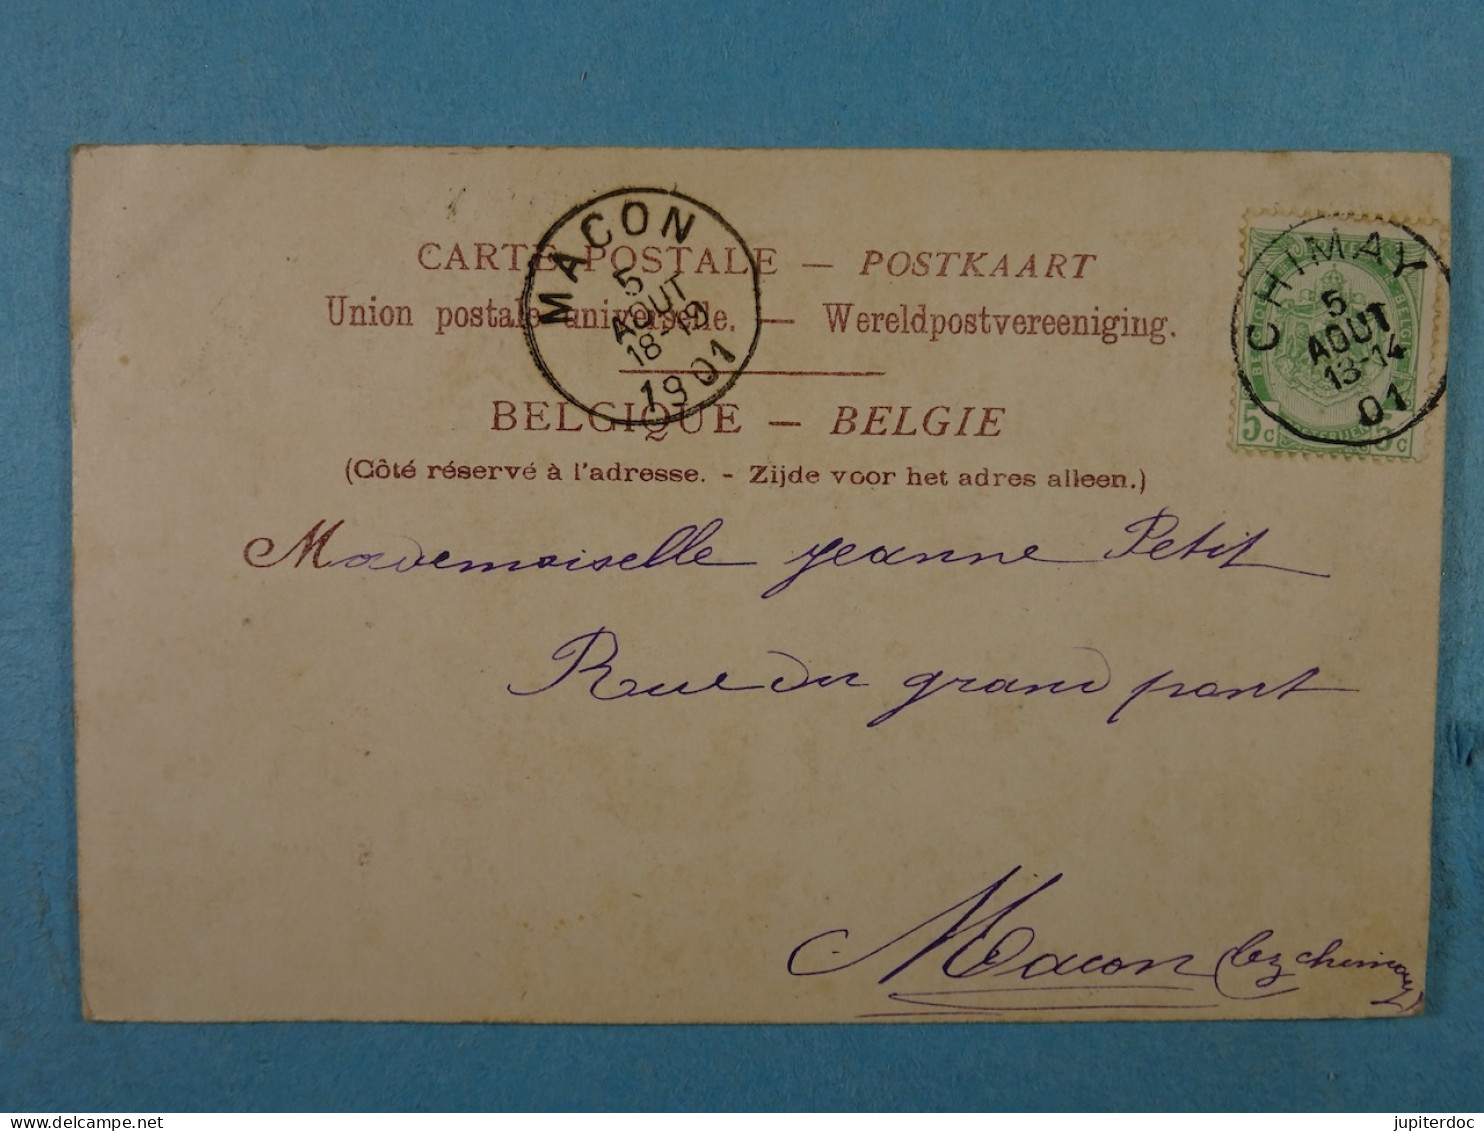 CARTE POSTALE — POSTKAART
Union postale universelle. — Wereldpostvereeniging.
BELGIQUE — BELGIE
(Côté réservé à l'adresse. - Zijde voor het adres alleen.)
MACON
5
AOUT
18-19
1901
CHIMAY
5
AOUT
13-14
01
5c 5c
Mademoiselle Jeanne Petit
Rue du grand pont
Macon (lez chimay)
delcampe.net
jupiterdoc